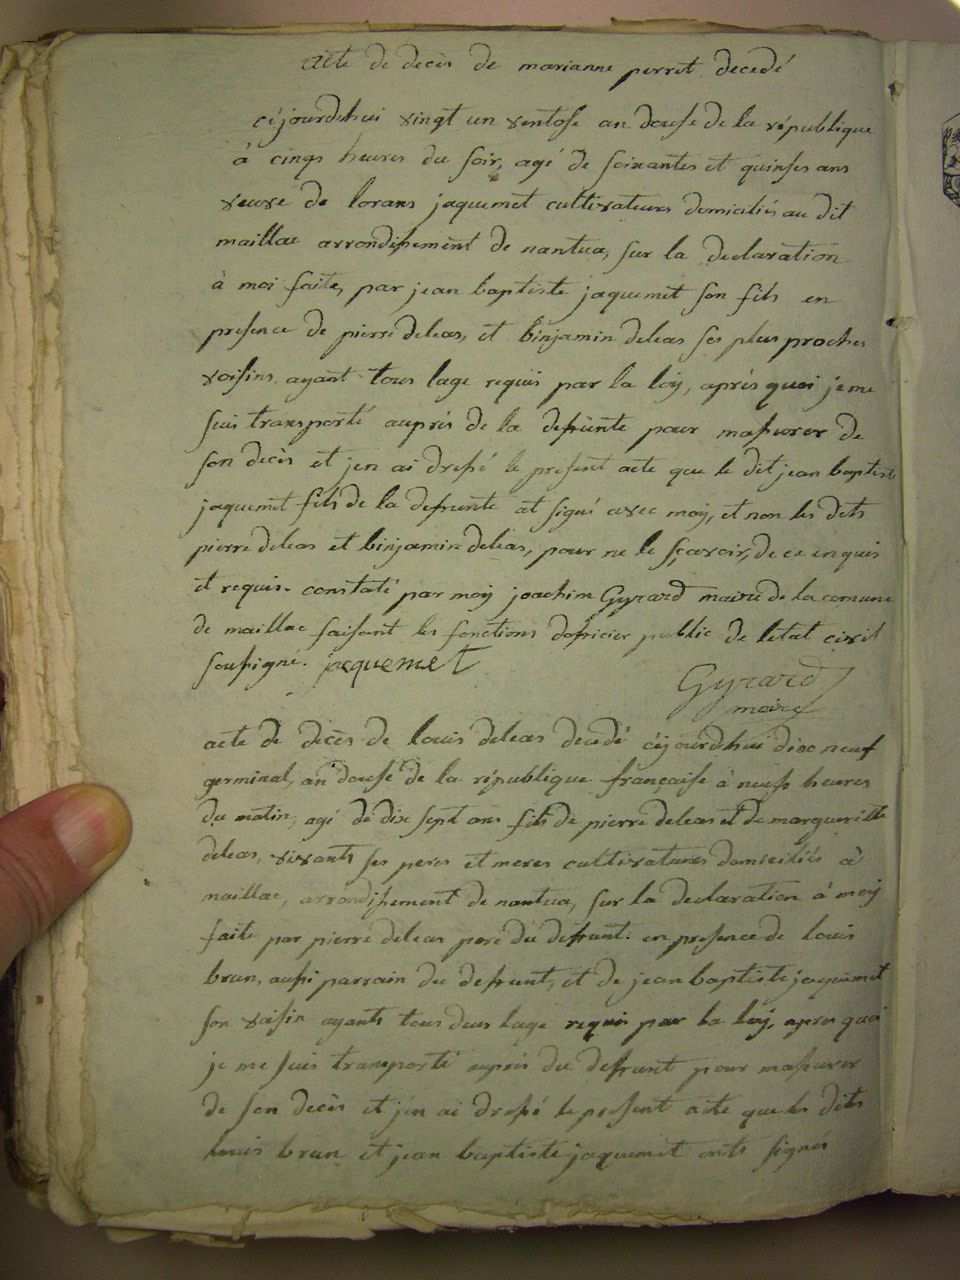 acte de decès de marianne perret decedé
cejourdhui vingt un ventose an douse de la république
à cinqs heures du soir, agé de soixantes et quinses ans
veuve de lorans jaquemet cultivateurs domiciliés au dit
maillac arrondissement de nantua, sur la declaration
à moi faite, par jean baptiste jaquemet son fils en
presence de pierre deleas, et binjamin deleas ses plus proches
voisins ayant tous lage requis par la loy, après quoi je me
suis transporté auprés de la defunte pour massurer de
son decès et jen ai dressé le present acte que le dit jean baptiste
jaquemet fils de la defunte at signé avec moy, et non les dits
pierre deleas et binjamin deleas, pour ne le sçavoir, de ce enquis
et requis. constaté par moy joachim Gyrard maire de la comune
de maillac faisant les fonctions dofficier public de letat civil
soussigné. jaquemet
Gyrard
maire
acte de decès de louis deleas decedé cejourdhui dixe neuf
germinal, an douse de la république française à neufs heures
du matin, agé de dix sept ans fils de pierre deleas et de margueritte
deleas, vivants ses peres et meres cultivateurs domiciliés à
maillac, arrondissement de nantua, sur la declaration à moy
faite par pierre deleas pere du defunt. en presence de louis
brun, aussi parrain du defunt, et de jean baptiste jaquemet
son voisin ayants tous deus lage requis par la loy, apres quoi
je me suis transporté auprès du defunt pour massurer
de son decès et j'en ai dressé le present acte que les dits
louis brun et jean baptiste jaquemet onts signés